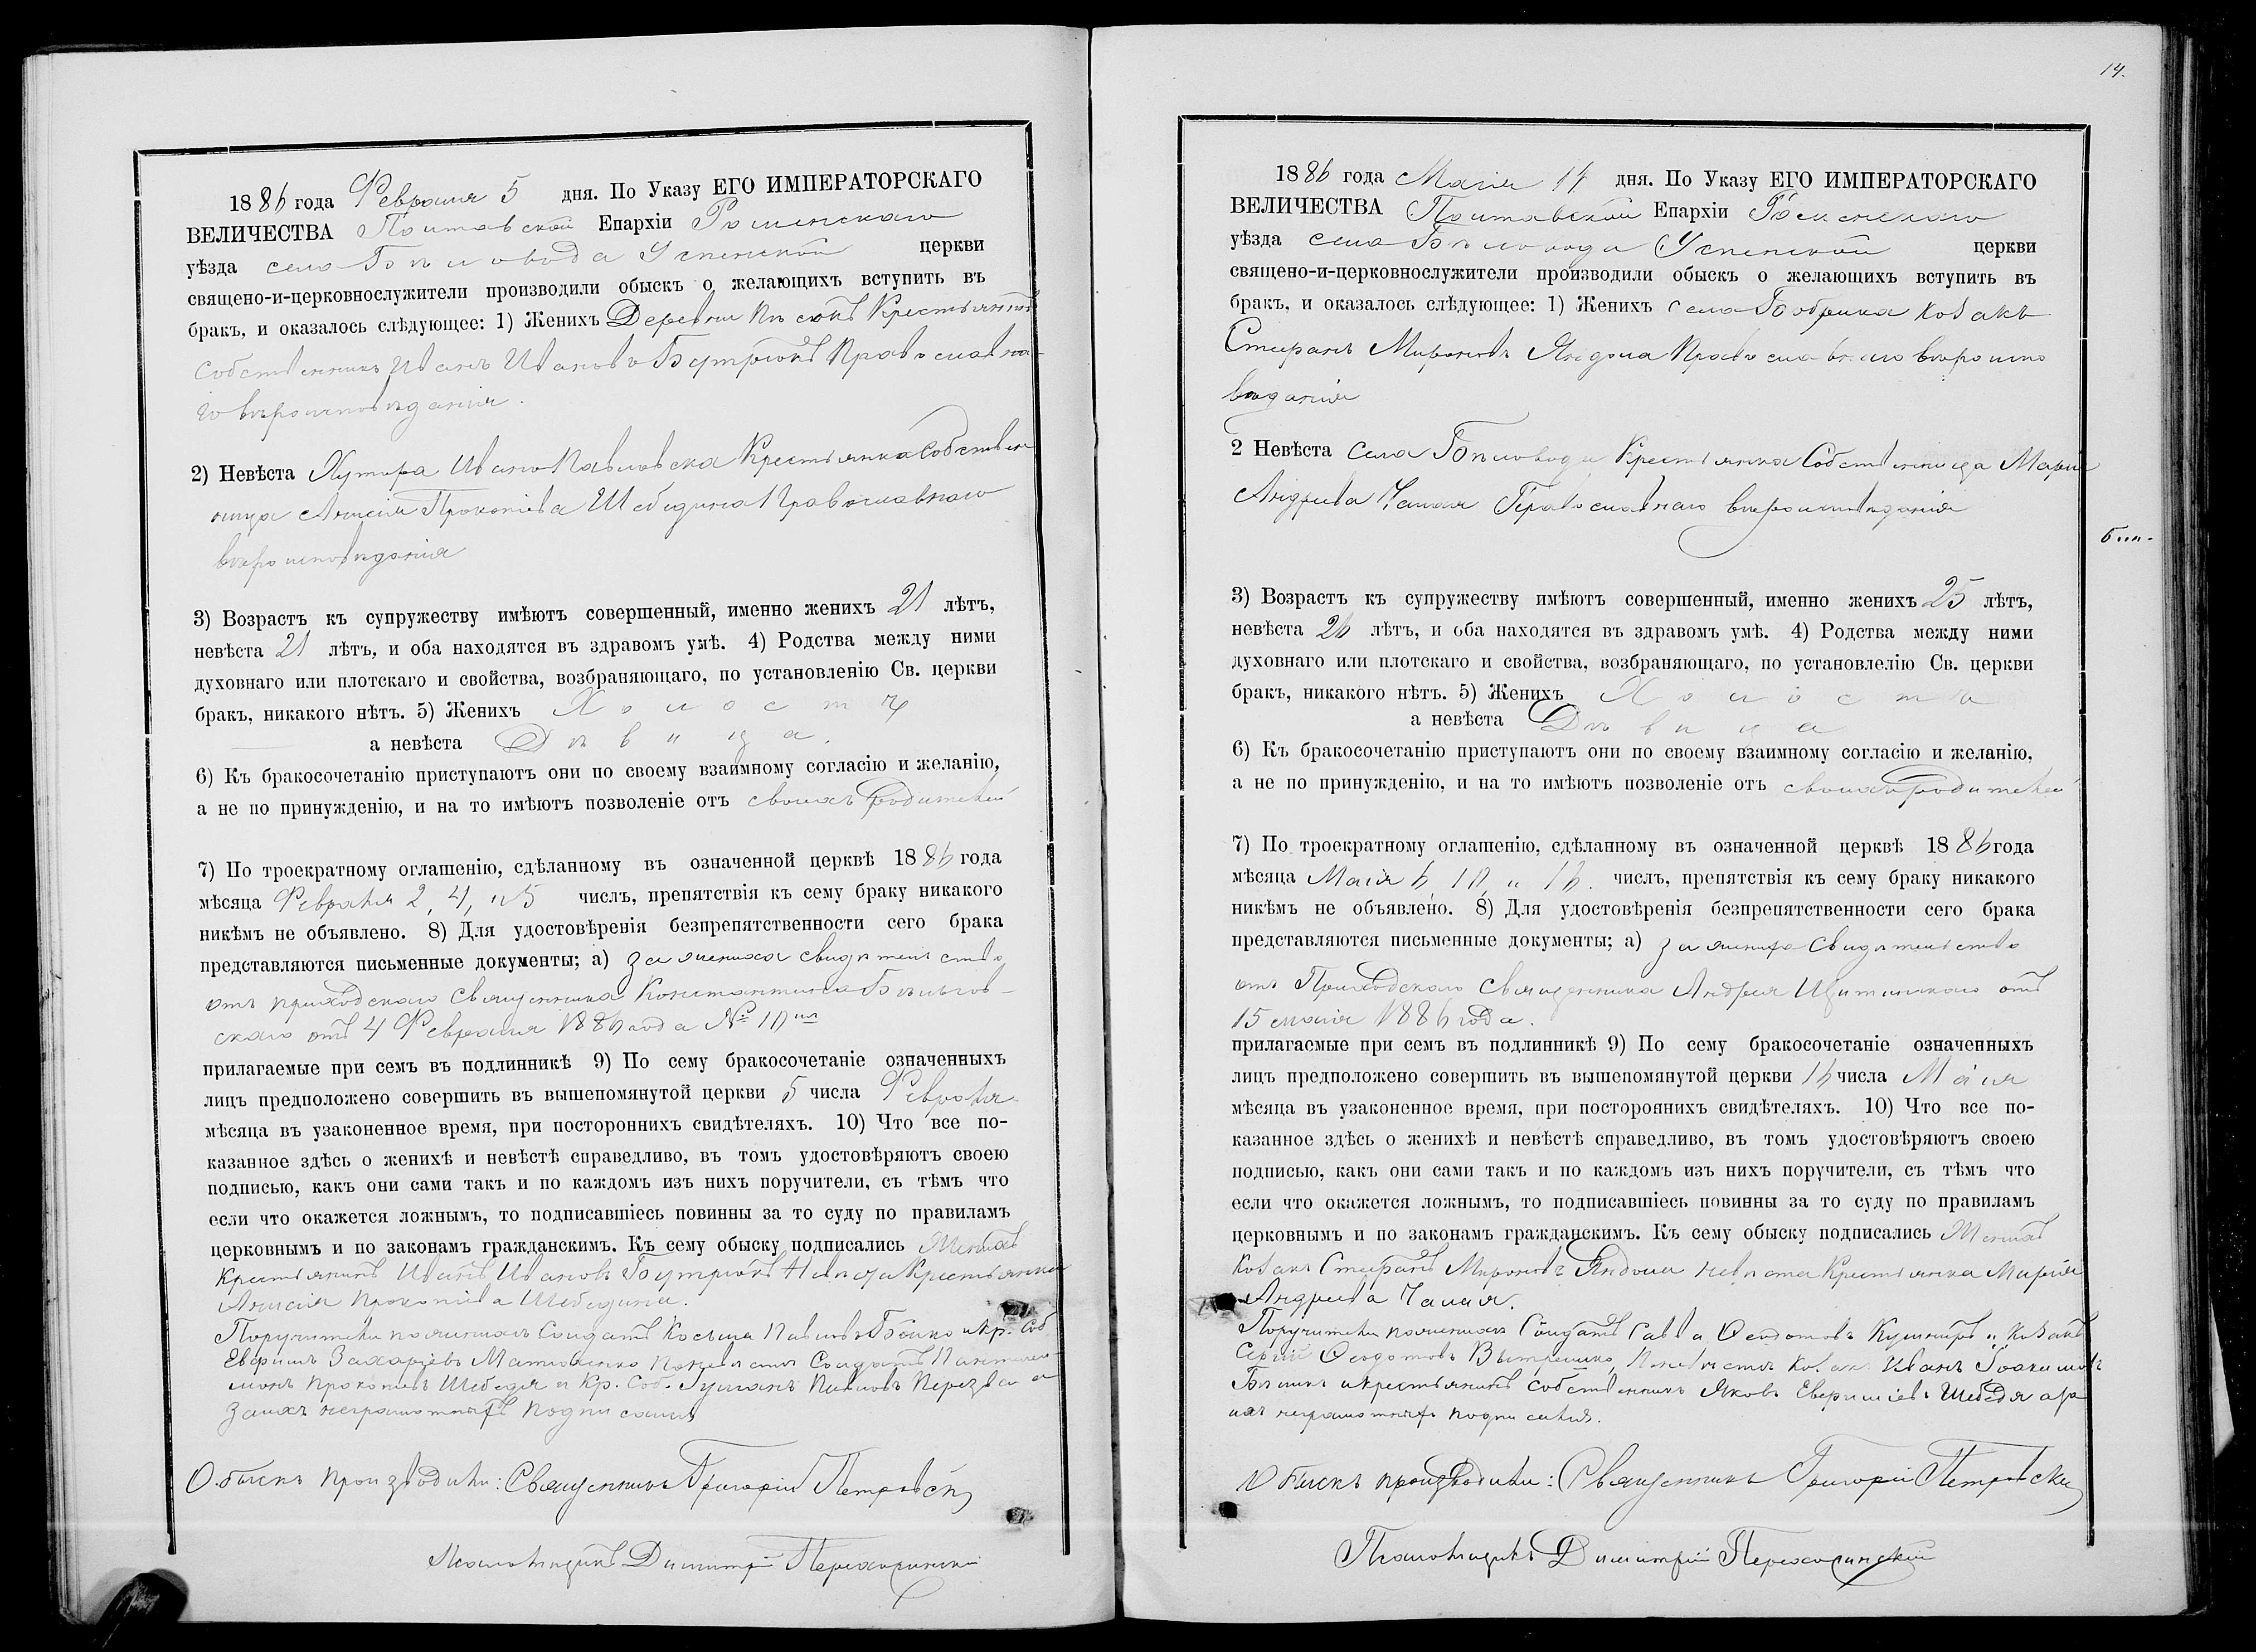 1886 года Февраля 5 дня. По Указу ЕГО ИМПЕРАТОРСКАГО
ВЕЛИЧЕСТВА Полтавской Епархіи Роменскаго
уѣзда села Бѣловода Успенской церкви
священо-и-церковнослужители производили обыскъ о желающихъ вступить въ
бракъ, и оказалось слѣдующее: 1) Женихъ Деревни Пѣсокъ Крестьянинъ
Собственникъ Иванъ Ивановъ Православна-
го вѣроисповѣданія.
2) Невѣста Хутора Ивано Павловска Крестьянка Собствен
ница Анисія Прокопіева Шебедина Православнаго
вѣроисповѣданія
3) Возрастъ къ супружеству имѣютъ совершенный, именно женихъ 21 лѣтъ,
невѣста 21 лѣтъ, и оба находятся въ здравомъ умѣ. 4) Родства между ними
духовнаго или плотскаго и свойства, возбраняющаго, по установленію Св. церкви
бракъ, никакого нѣтъ. 5) Женихъ Холостъ
а невѣста Дѣвица.
6) Къ бракосочетанію приступаютъ они по своему взаимному согласію и желанію,
а не по принужденію, и на то имѣютъ позволеніе отъ своихъ родителей
7) По троекратному оглашенію, сдѣланному въ означенной церквѣ 1886 года
мѣсяца Февраля 2, 4, и 5 числъ, препятствія къ сему браку никакого
никѣмъ не объявлено. 8) Для удостовѣренія безпрепятственности сего брака
представляются письменные документы; а) за жениха свидѣтельство
отъ приходскаго Священника Константина
скаго отъ 4 Февраля 1886 года № 10
прилагаемые при семъ въ подлинникѣ 9) По сему бракосочетаніе означенныхъ
лицъ предположено совершить въ вышепомянутой церкви 5 числа Февраля
мѣсяца въ узаконенное время, при постороннихъ свидѣтеляхъ. 10) Что все по-
казанное здѣсь о женихѣ и невѣстѣ справедливо, въ томъ удостовѣряютъ своею
подписью, какъ они сами такъ и по каждомъ изъ нихъ поручители, съ тѣмъ что
если что окажется ложнымъ, то подписавшіесь повинны за то суду по правиламъ
церковнымъ и по законамъ гражданскимъ. Къ сему обыску подписались Женихъ
Крестьянинъ Иванъ Ивановъ Невѣста Крестьянка
Анисія Прокопіева Шебедина.
Поручители по женихѣ Солдатъ Косьма Павловъ Бойко и кр. Соб
Евфимъ Захаріевъ Матвѣенко по невѣстѣ Солдатъ Пантелеи-
монъ Прокопіевъ Шебедя и Кр. Соб.
за ихъ неграмотныхъ подписался
Обыскъ производили: Священникъ Григорій Петровскій
Псаломщикъ Димитрій
14.
1886 года Маія 14 дня. По Указу ЕГО ИМПЕРАТОРСКАГО
ВЕЛИЧЕСТВА Полтавской Епархіи Роменскаго
уѣзда села Бѣловода Успенской церкви
священо-и-церковнослужители производили обыскъ о желающихъ вступить въ
бракъ, и оказалось слѣдующее: 1) Женихъ села Бобрика Козакъ
Стефанъ Мироновъ Яндола Православнаго вѣроиспо
вѣданія
2 Невѣста Села Бѣловода Крестьянка Собственница Марія
Андреева Чалая Православнаго вѣроисповѣданія
3) Возрастъ къ супружеству имѣютъ совершенный, именно женихъ 25 лѣтъ,
невѣста 26 лѣтъ, и оба находятся въ здравомъ умѣ. 4) Родства между ними
духовнаго или плотскаго и свойства, возбраняющаго, по установлелію Св. церкви
бракъ, никакого нѣтъ. 5) Женихъ Холостъ
а невѣста Дѣвица
6) Къ бракосочетанію приступаютъ они по своему взаимному согласію и желанію,
а не по принужденію, и на то имѣютъ позволеніе отъ своихъ родителей
7) По троекратному оглашенію, сдѣланному въ означенной церквѣ 1886 года
мѣсяца Маія 6, 10, и 16. числъ, препятствія къ сему браку никакого
никѣмъ не объявлено. 8) Для удостовѣренія безпрепятственности сего брака
представляются письменные документы; а) за жениха Свидѣтельство
отъ Приходскаго Священника Андрея отъ
15 маія 1886 года.
прилагаемые при семъ въ подлинникѣ 9) По сему бракосочетаніе означенныхъ
лицъ предположено совершить въ вышепомянутой церкви 16 числа Маія
мѣсяца въ узаконенное время, при постороннихъ свидѣтеляхъ. 10) Что все по-
казанное здѣсь о женихѣ и невѣстѣ справедливо, въ томъ удостовѣряютъ своею
подписью, какъ они сами такъ и по каждомъ изъ нихъ поручители, съ тѣмъ что
если что окажется ложнымъ, то подписавшіесь повинны за то суду по правиламъ
церковнымъ и по законамъ гражданскимъ. Къ сему обыску подписались Женихъ
Козакъ Стефанъ Мироновъ Яндола невѣста Крестьянка Марія
Андреева Чалая.
Поручители по женихѣ Солдатъ Савва Феодотовъ Кушниръ и Козакъ
Сергій Феодотовъ по невѣстѣ Козакъ Иванъ Іоакимовъ
Бѣликъ и крестьянинъ собственникъ Яковъ Евфиміевъ Шебедя а за
ихъ неграмотныхъ подписался.
Обыскъ производили: Священникъ Григорій Петровскій
Псаломщикъ Димитрій